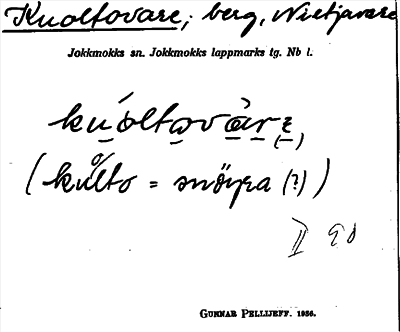 Kuoltovare, berg, Nietjavare
Jokkmokks sn. Jokkmokks lappmarks tg. Nb l.
kúoltovàrɛ
(–)
(kulto = snöyra (?))
II 90
GUNNAR PELLIJEFF. 1936.